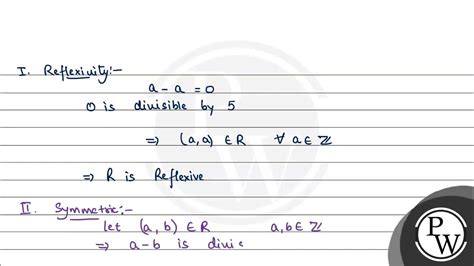 I. Reflexivity:-
a - a = 0
0 is divisible by 5
⇒ (a, a) ∈ R ∀ a ∈ ℤ
⇒ R is Reflexive
II. Symmetric:-
let (a, b) ∈ R a, b ∈ ℤ
⇒ a - b is divi
P
W